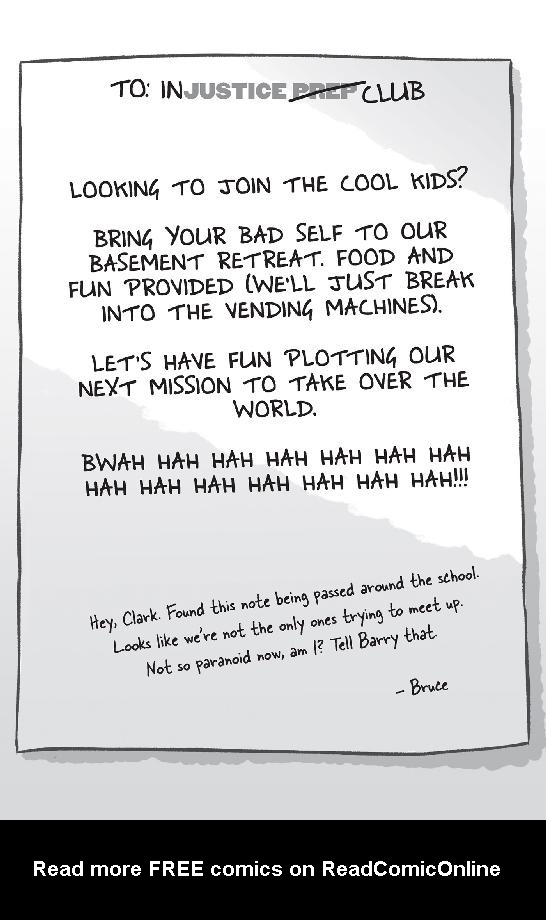 TO: INJUSTICE PREP CLUB
LOOKING TO JOIN THE COOL KIDS?
BRING YOUR BAD SELF TO OUR
BASEMENT RETREAT. FOOD AND
FUN PROVIDED (WE'LL JUST BREAK
INTO THE VENDING MACHINES).
LET'S HAVE FUN PLOTTING OUR
NEXT MISSION TO TAKE OVER THE
WORLD.
BWAH HAH HAH HAH HAH HAH HAH
HAH HAH HAH HAH HAH HAH HAH!!!
Hey, Clark. Found this note being passed around the school.
Looks like we're not the only ones trying to meet up.
Not so paranoid now, am I? Tell Barry that.
– Bruce
Read more FREE comics on ReadComicOnline